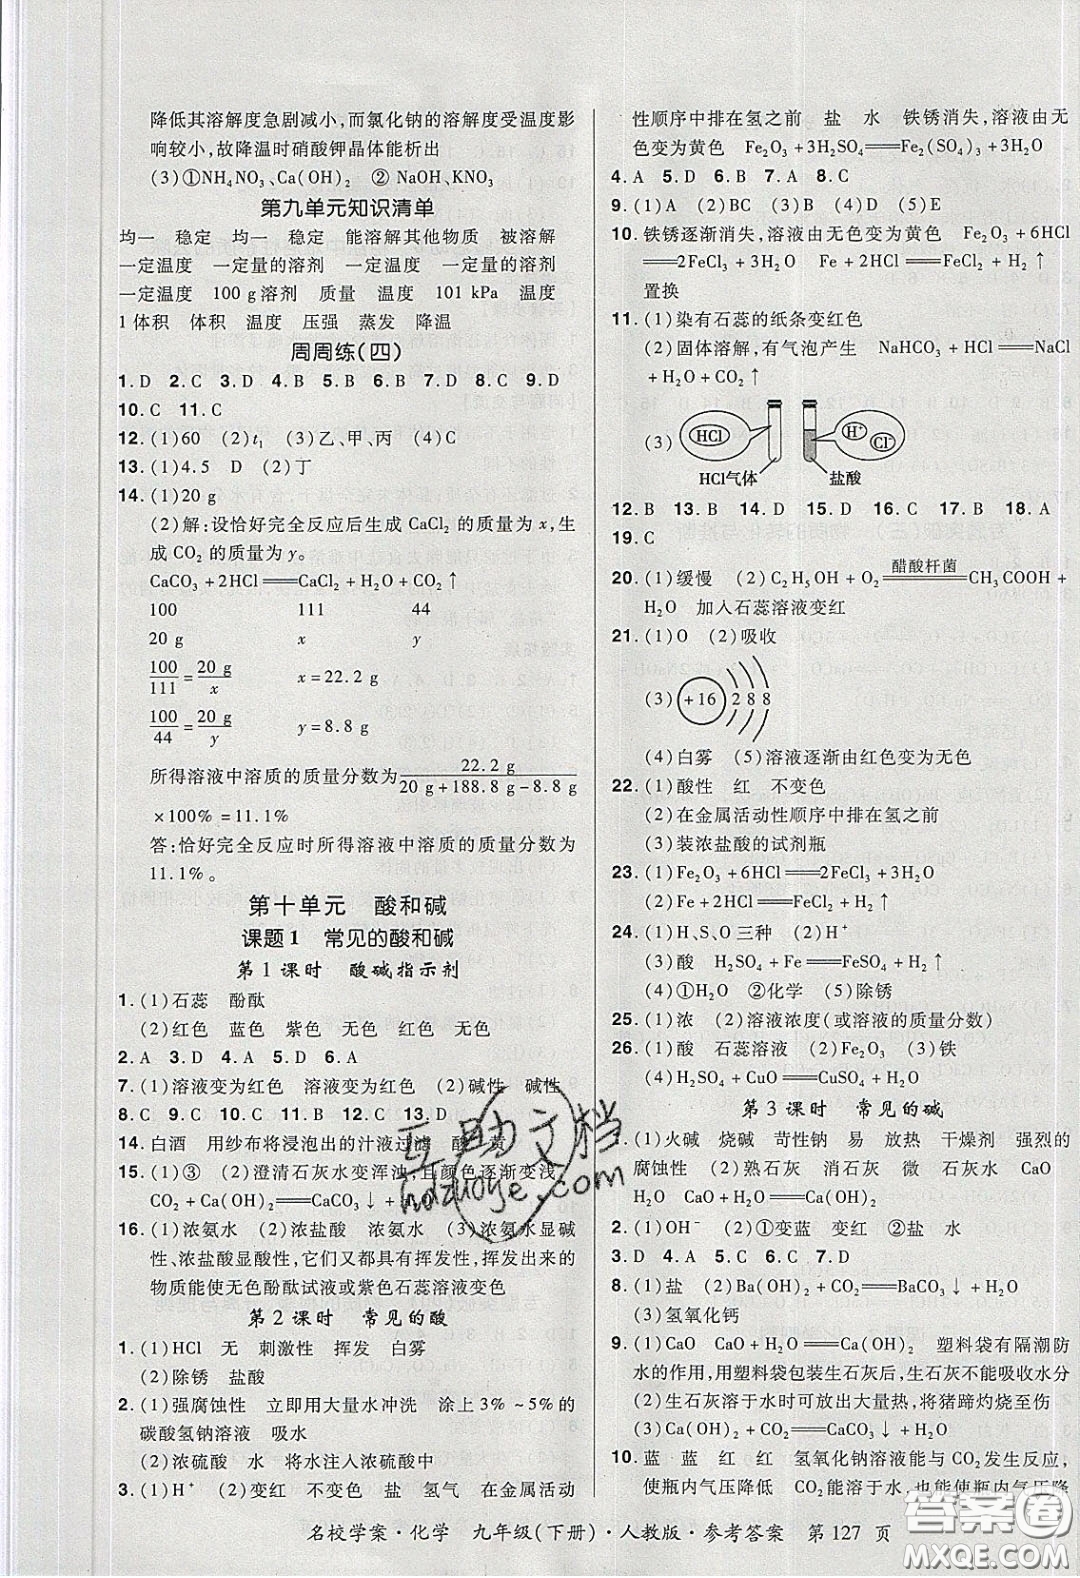 降低其溶解度急剧减小,而氯化钠的溶解度受温度影
响较小,故降温时硝酸钾晶体能析出
(3)①NH₄NO₃、Ca(OH)₂ ②NaOH、KNO₃
第九单元知识清单
均一 稳定 均一 稳定 能溶解其他物质 被溶解
一定温度 一定量的溶剂 一定温度 一定量的溶剂
一定温度 100 g溶剂 质量 温度 101 kPa 温度
1体积 体积 温度 压强 蒸发 降温
周周练(四)
1. D 2. C 3. D 4. D 5. B 6. B 7. D 8. C 9. D
10. C 11. C
12. (1)60 (2)t₁ (3)乙、甲、丙 (4)C
13. (1)4.5 D (2)丁
14. (1)20 g
(2)解:设恰好完全反应后生成 CaCl₂ 的质量为 x,生
成 CO₂ 的质量为 y。
CaCO₃ + 2HCl══CaCl₂ + H₂O + CO₂↑
100 111 44
20 g x y
100/111 = 20 g/x x = 22.2 g
100/44 = 20 g/y y = 8.8 g
所得溶液中溶质的质量分数为 22.2 g/(20 g+188.8 g-8.8 g)
×100% = 11.1%
答:恰好完全反应时所得溶液中溶质的质量分数为
11.1%。
第十单元 酸和碱
课题1 常见的酸和碱
第1课时 酸碱指示剂
1. (1)石蕊 酚酞
(2)红色 蓝色 紫色 无色 红色 无色
2. A 3. D 4. D 5. D 6. A
7. (1)溶液变为红色 溶液变为红色 (2)碱性 碱性
8. C 9. C 10. C 11. C 12. C 13. D
14. 白酒 用纱布将浸泡出的汁液过滤 酸 黄
15. (1)③ (2)澄清石灰水变浑浊,且颜色逐渐变浅
CO₂ + Ca(OH)₂══CaCO₃↓ + H₂O
16. (1)浓氨水 (2)浓盐酸 浓氨水 (3)浓氨水显碱
性、浓盐酸显酸性,它们又都具有挥发性,挥发出来的
物质能使无色酚酞试液或紫色石蕊溶液变色
第2课时 常见的酸
1. (1)HCl 无 刺激性 挥发 白雾
(2)除锈 盐酸
2. (1)强腐蚀性 立即用大量水冲洗 涂上3%~5%的
碳酸氢钠溶液 吸水
(2)浓硫酸 将水注入浓硫酸
3. (1)H⁺ (2)变红 不变色 盐 氢气 在金属活动
性顺序中排在氢之前 盐 水 铁锈消失,溶液由无
色变为黄色 Fe₂O₃ + 3H₂SO₄══Fe₂(SO₄)₃ + 3H₂O
4. A 5. D 6. D 7. A 8. C
9. (1)A (2)BC (3)B (4)D (5)E
10. 铁锈逐渐消失,溶液由无色变为黄色 Fe₂O₃ + 6HCl
══2FeCl₃ + 3H₂O Fe + 2HCl══FeCl₂ + H₂↑
置换
11. (1)染有石蕊的纸条变红色
(2)固体溶解,有气泡产生 NaHCO₃ + HCl══NaCl
+ H₂O + CO₂↑
(3) HCl H⁺ Cl⁻
HCl气体 盐酸
12. B 13. B 14. D 15. D 16. C 17. D 18. A
19. C
20. (1)缓慢 (2)C₂H₅OH + O₂ ═醋酸杆菌═ CH₃COOH +
H₂O 加入石蕊溶液变红
21. (1)O (2)吸收
(3) +16 2 8 8
(4)白雾 (5)溶液逐渐由红色变为无色
22. (1)酸性 红 不变色
(2)在金属活动性顺序中排在氢之前
(3)装浓盐酸的试剂瓶
23. (1)Fe₂O₃ + 6HCl══2FeCl₃ + 3H₂O
(2)没有
24. (1)H、S、O三种 (2)H⁺
(3)酸 H₂SO₄ + Fe══FeSO₄ + H₂↑
(4)①H₂O ②化学 (5)除锈
25. (1)浓 (2)溶液浓度(或溶液的质量分数)
26. (1)酸 石蕊溶液 (2)Fe₂O₃ (3)铁
(4)H₂SO₄ + CuO══CuSO₄ + H₂O
第3课时 常见的碱
1. (1)火碱 烧碱 苛性钠 易 放热 干燥剂 强烈的
腐蚀性 (2)熟石灰 消石灰 微 石灰水 CaO +
H₂O══Ca(OH)₂
2. (1)OH⁻ (2)①变蓝 变红 ②盐 水
3. D 4. A 5. C 6. D 7. D
8. (1)盐 (2)Ba(OH)₂ + CO₂══BaCO₃↓ + H₂O
(3)氢氧化钙
9. (1)CaO CaO + H₂O══Ca(OH)₂ 塑料袋有隔潮防
水的作用,用塑料袋包装生石灰后,生石灰不能吸收水分
(2)生石灰溶于水时可放出大量热,将猪蹄灼烧至焦
(3)Ca(OH)₂ + CO₂══CaCO₃↓ + H₂O
10. 蓝 蓝 红 红 氢氧化钠溶液能与CO₂发生反应,
使瓶内气压降低 CO₂能溶于水,也能使瓶内气压降
名校学案·化学 九年级(下册)·人教版·参考答案 第127页
互助文档
hdzuoye.com
答案圈
MXQE.COM